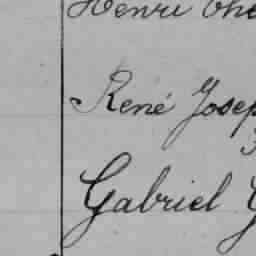 Henri
René Josep
Gabriel